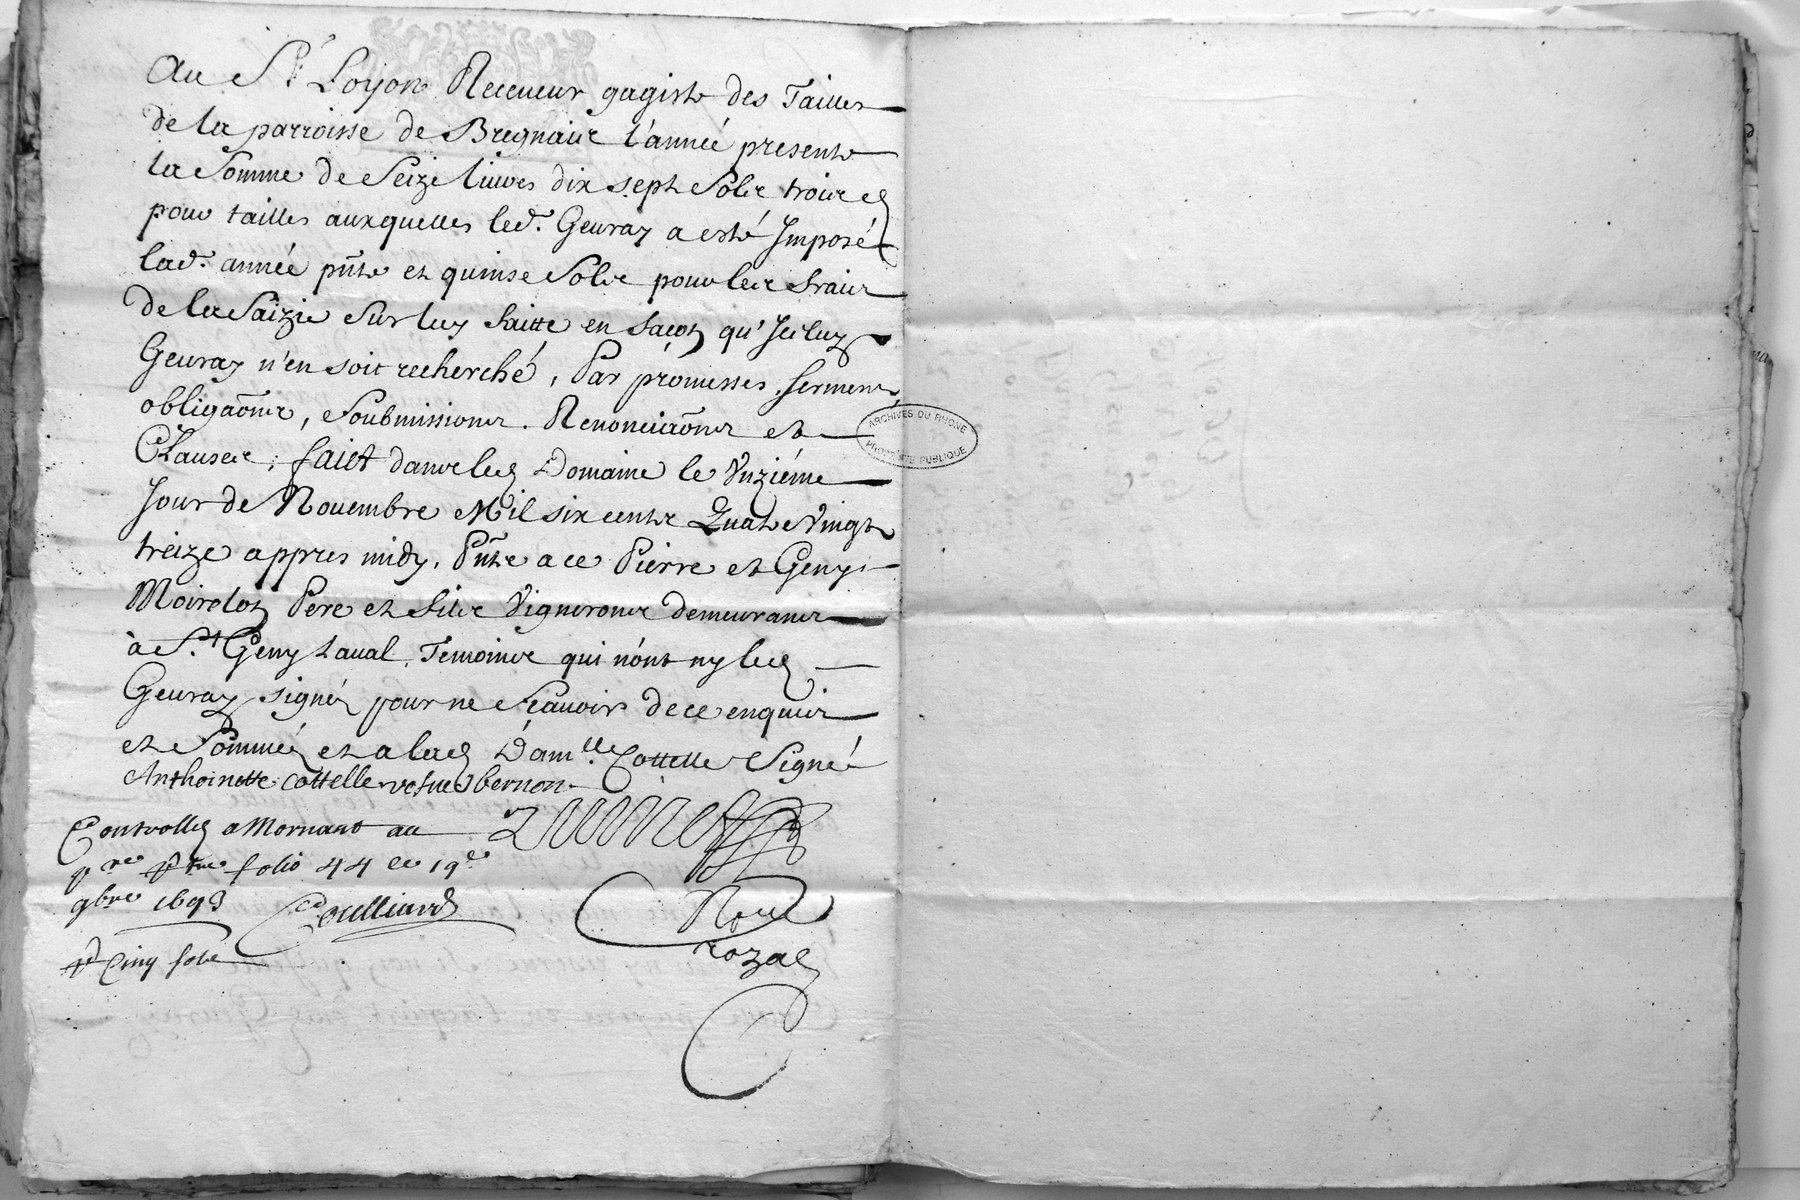 Au Sr. Loyon Receveur gagiste des Tailles
de la parroisse de Bregnais l'année presente
la Somme de Seize liures dix sept Sols trois d
pour tailles auxquelles led. Geuray a esté Imposé
lad. année pnte et quinse Sols pour les fraix
de la Saizie Sur luy faitte en façon qu'Iceluy
Geuray n'en soit recherché, Par promesses, sermens,
obligaōns, Soubmissions. Renonciaōns et
Clauses, fait dans led Domaine le Unziéme
Jour de Nouembre Mil six cents Quatre Vingts
treize appres midy, Pnts a ce Pierre et Geny
Moirolon Pere et fils Vignerons demeurants
à St. Geny Laual, Temoins qui n'ont ny led
Geuray signé pour ne Scauoir de ce enquis
et Sommés et a lad Damlle. Cottelle Signé
Anthoinette cottelle vefue bernon
Controllé a Mornant au
folio 44 le 19e
9bre 1693
Cinq sols
ARCHIVES DU RHONE
PROPRIÉTÉ PUBLIQUE